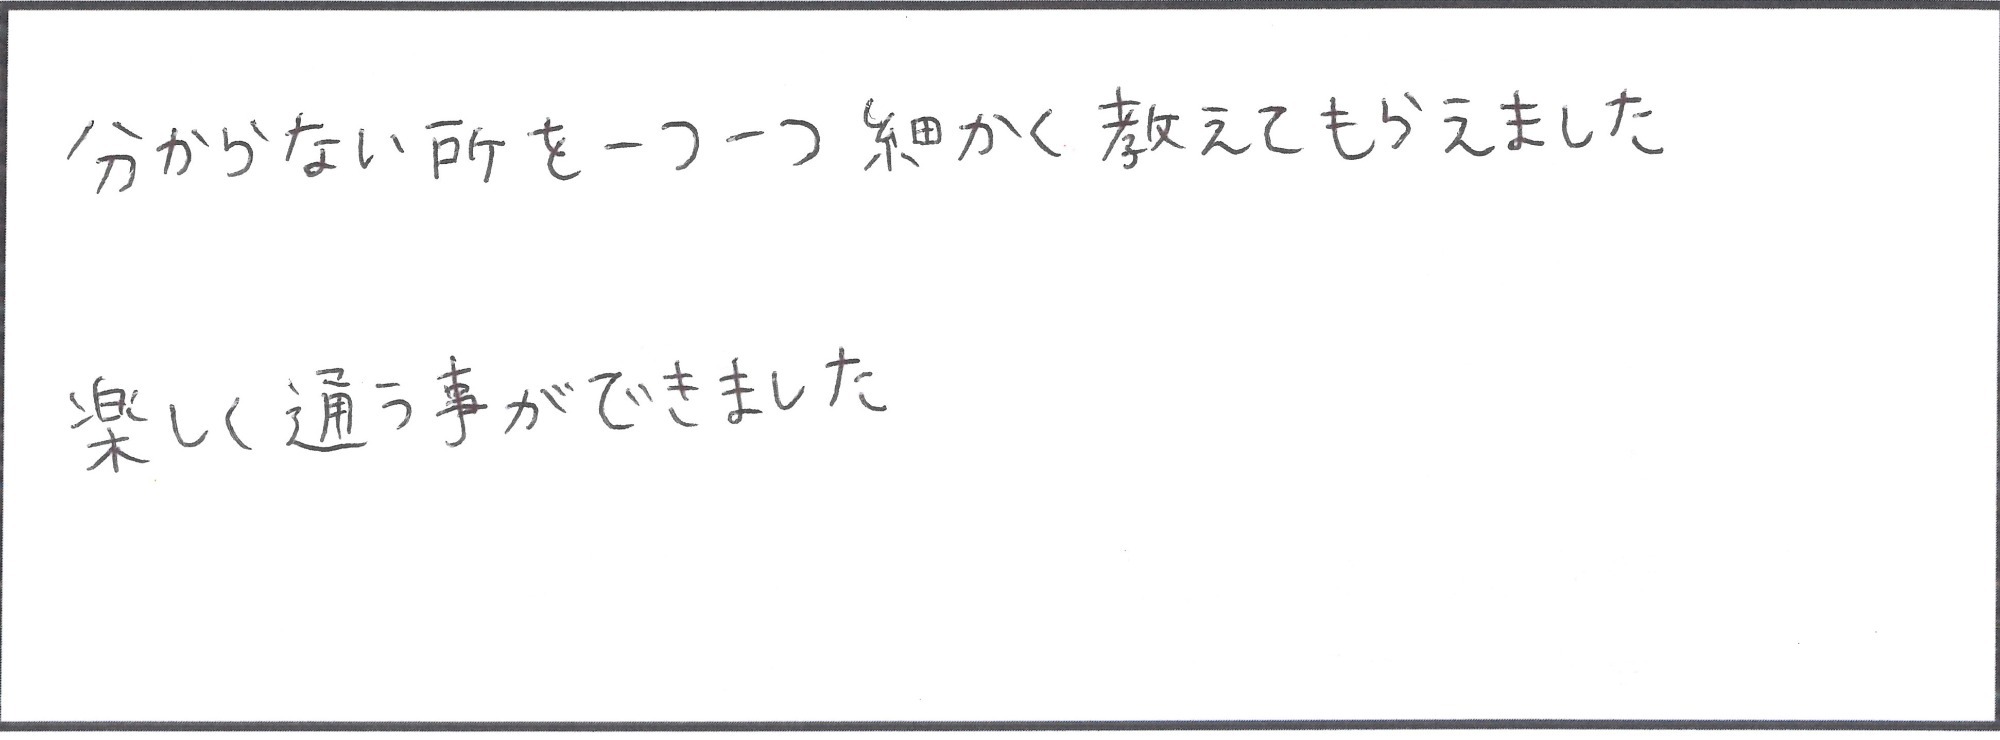 分からない所を一つ一つ細かく教えてもらえました
楽しく通う事ができました